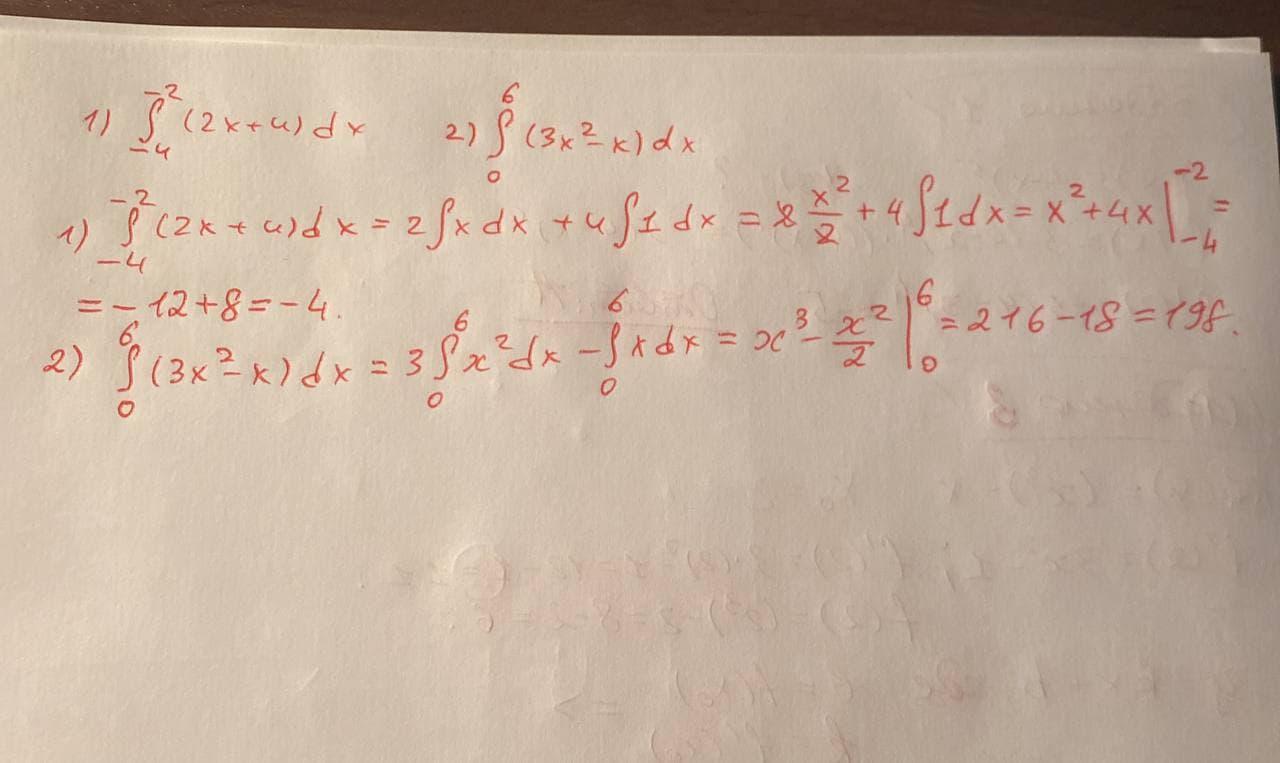 1) ∫₋₄⁻² (2x+4) dx 2) ∫₀⁶ (3x²-x) dx
1) ∫₋₄⁻² (2x+4) dx = 2∫x dx + 4∫1 dx = 2 x²/2 + 4∫1 dx = x²+4x |₋₄⁻² =
= -12+8=-4.
2) ∫₀⁶ (3x²-x) dx = 3∫₀⁶ x² dx - ∫₀⁶ x dx = x³ - x²/2 |₀⁶ = 216-18=198.